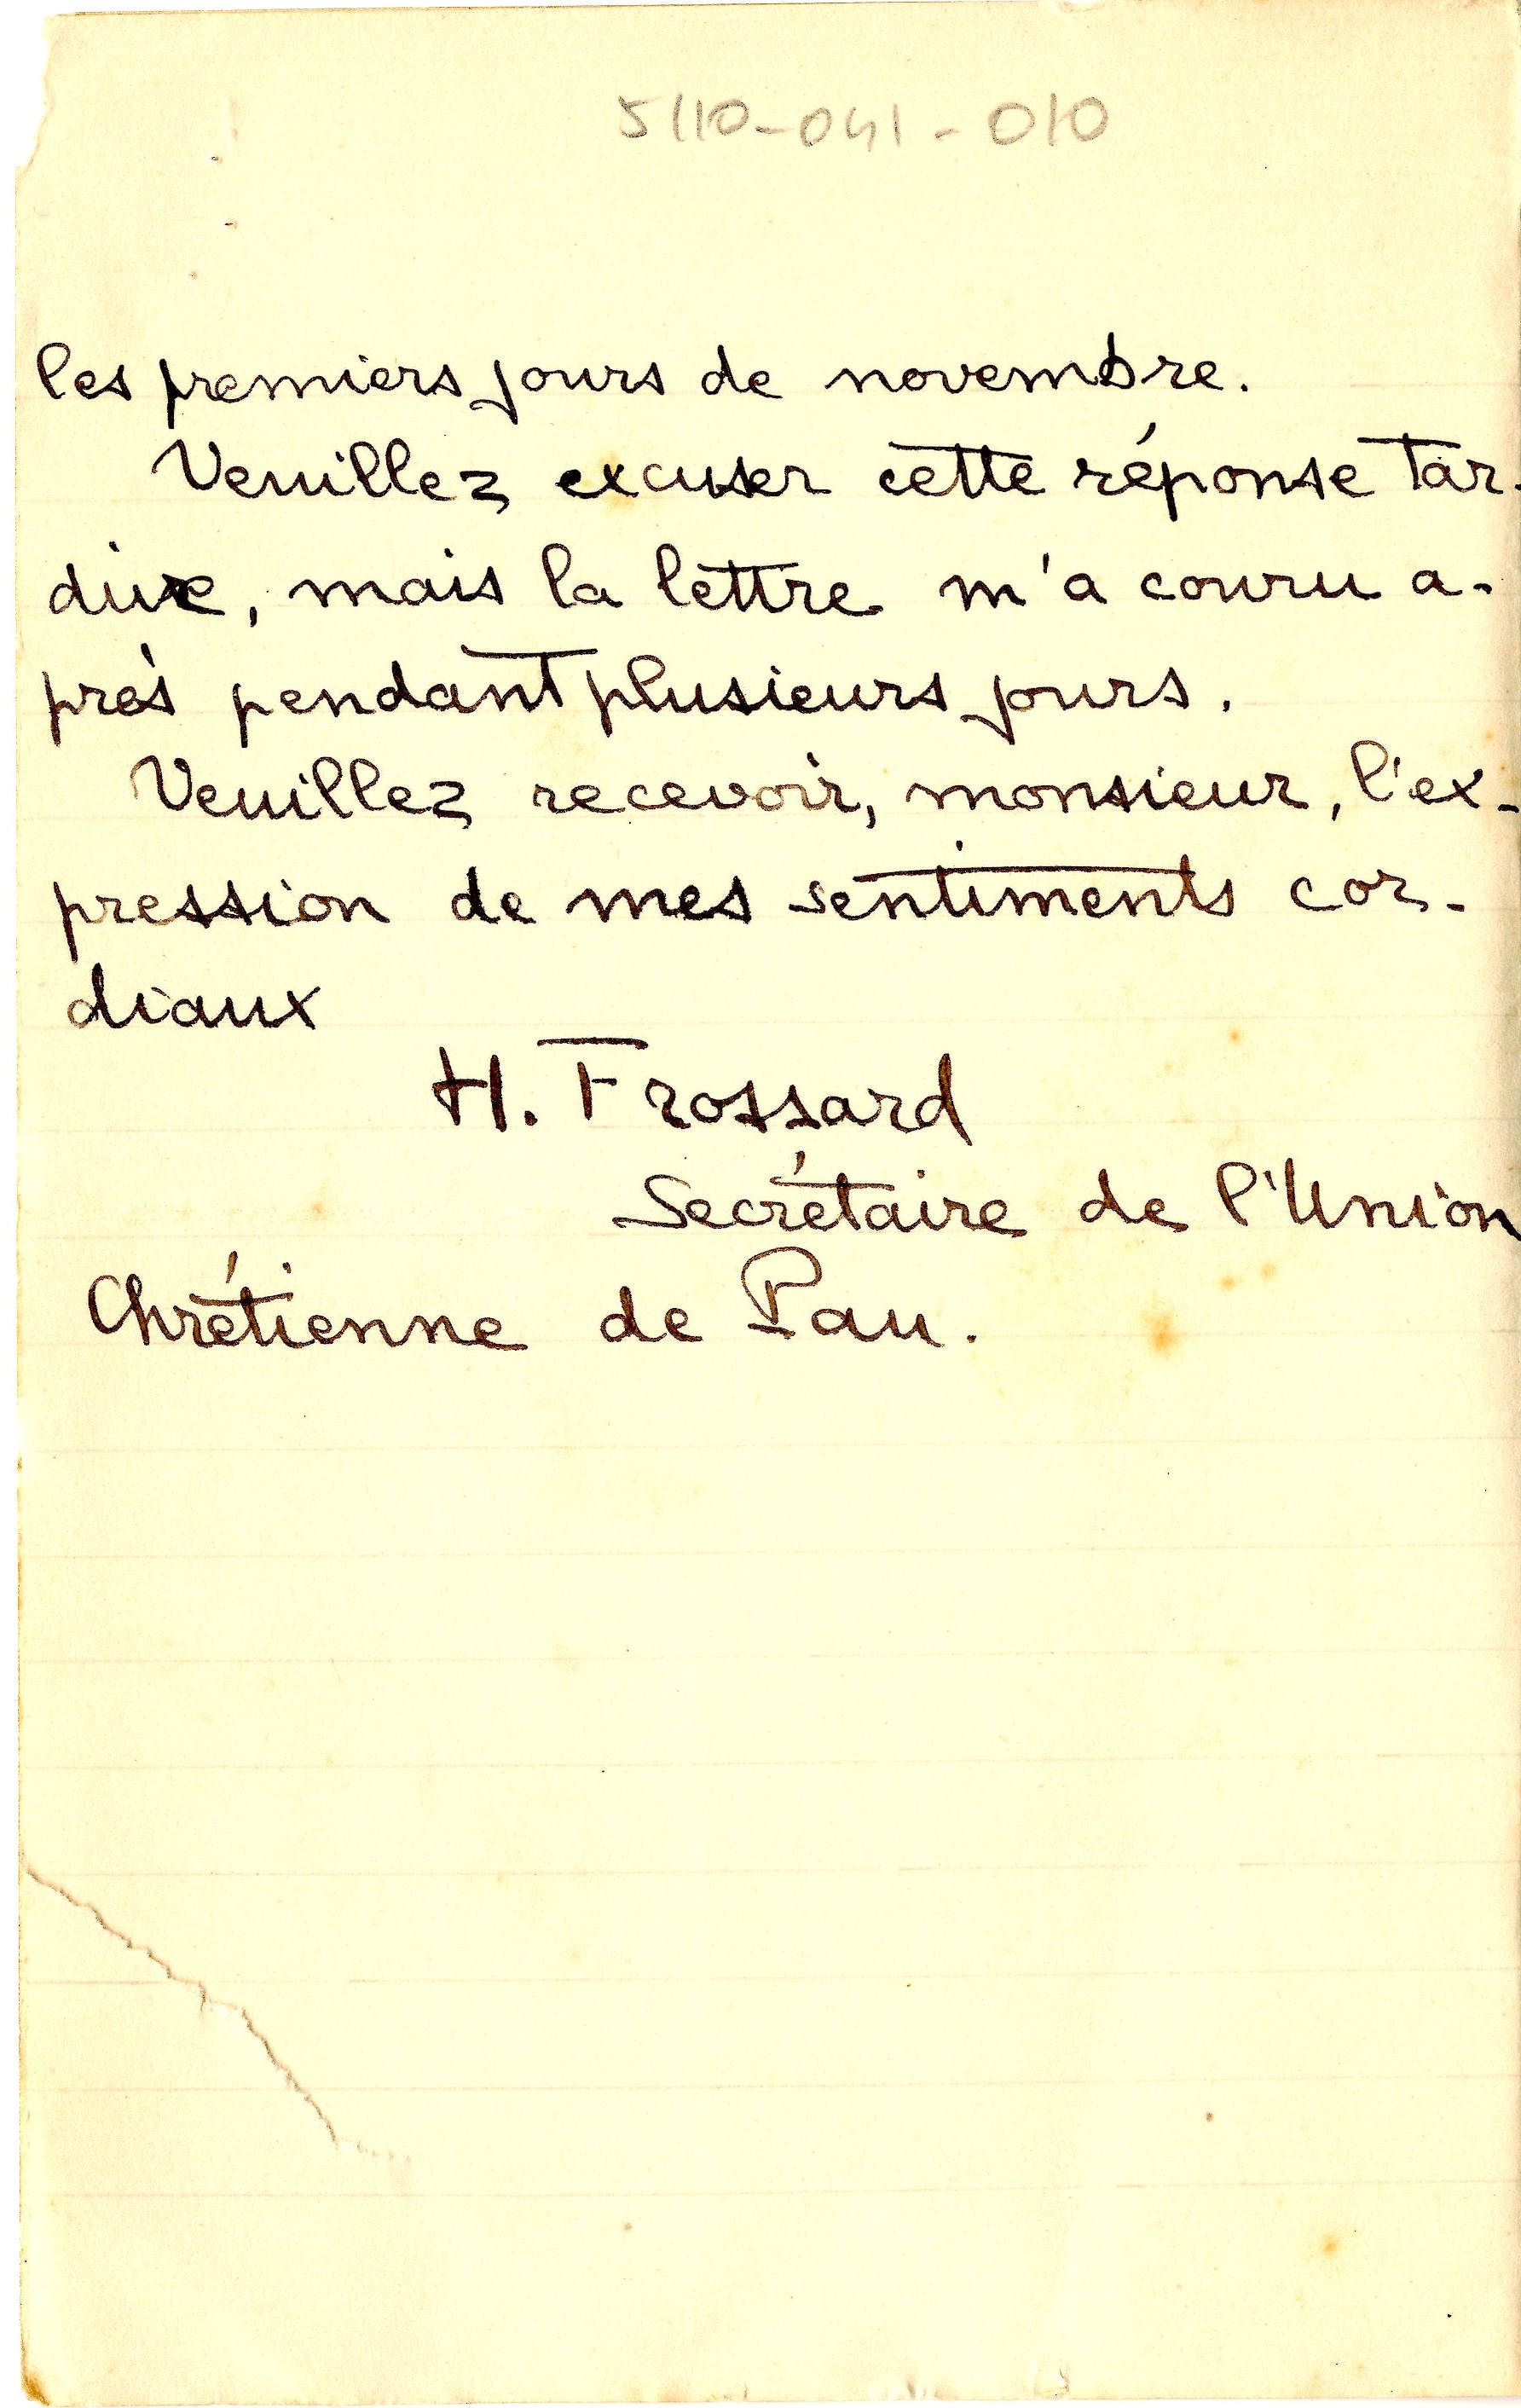 5110-041-010
les premiers jours de novembre.
Veuillez excuser cette réponse tar-
dive, mais la lettre m'a couru a-
près pendant plusieurs jours.
Veuillez recevoir, monsieur, l'ex-
pression de mes sentiments cor-
diaux
H. Frossard
Secrétaire de l'Union
Chrétienne de Pau.